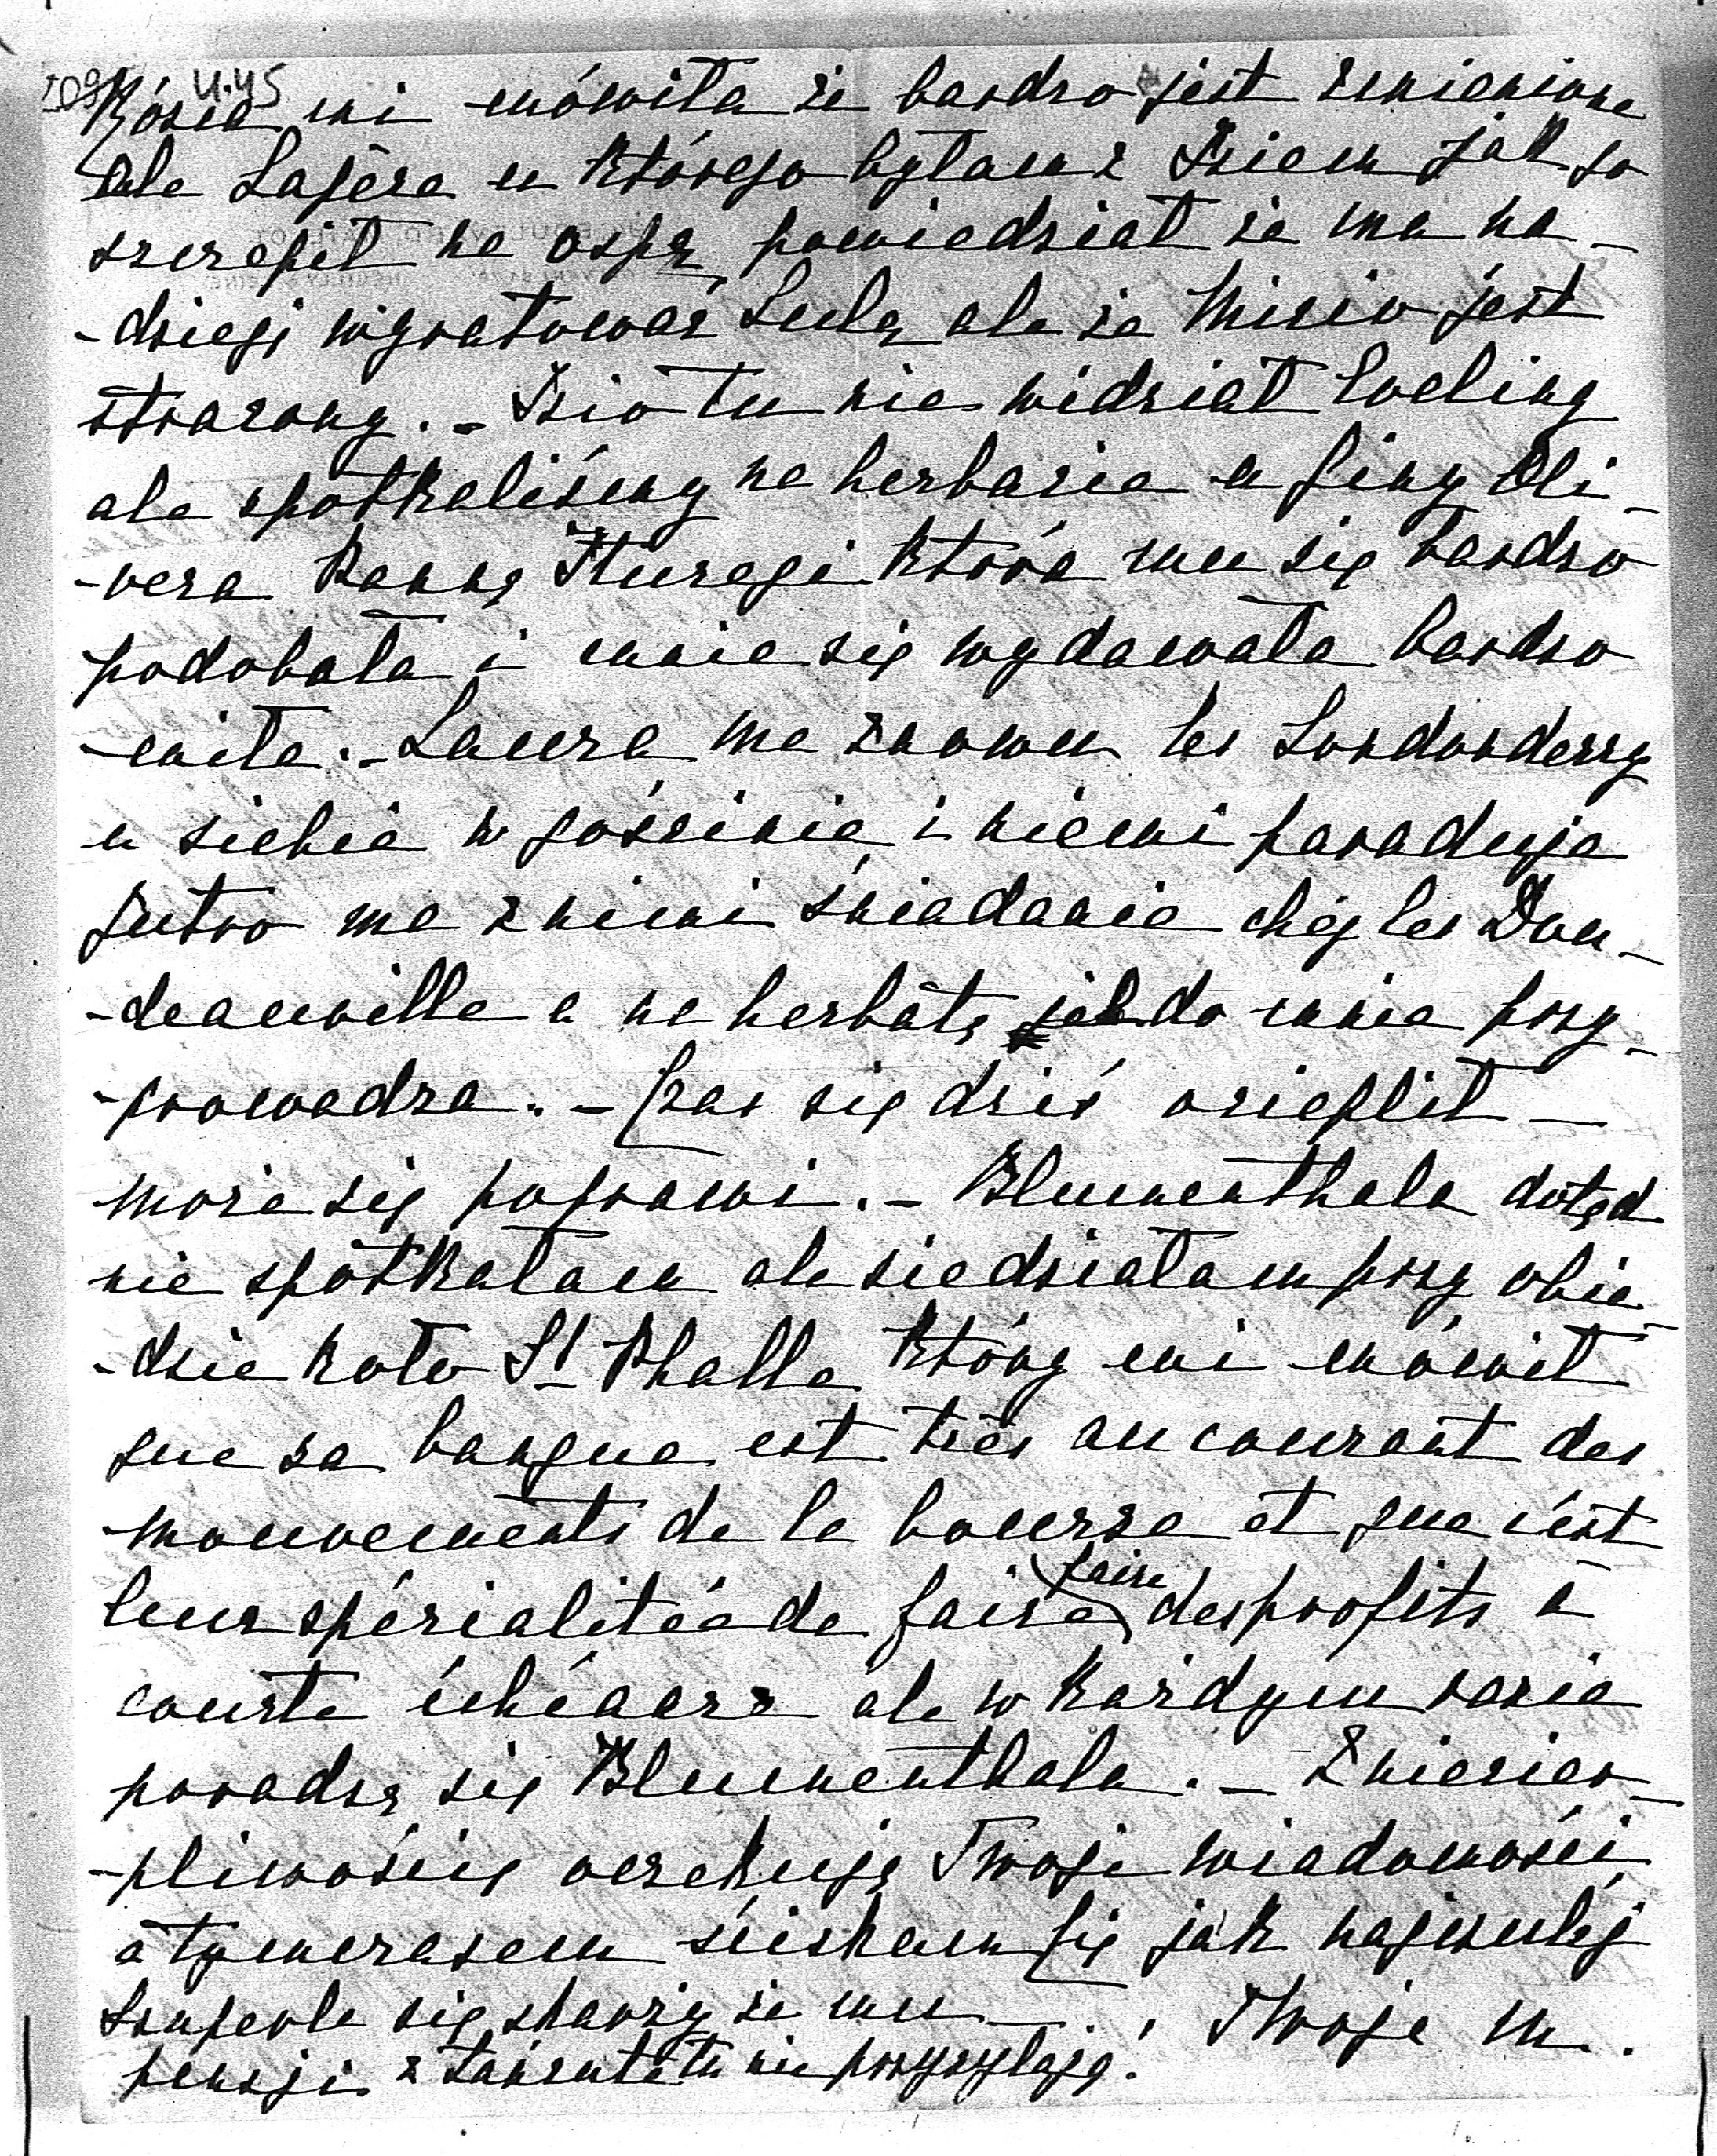 4.45
Rózia mi mówiła że bardzo jest zmieniona
ale Lagèra u którego byłam z Dziem jak go
szczepił na ospę powiedział że ma na-
-dzieję wyratować Lulę ale że Misio jest
stracony. - Dzio tu nie widział Eveliny
ale spotkaliśmy na herbacie u Giny Oli-
-vera Pannę Ituregi która mu się bardzo
podobała i mnie się wydawała bardzo
-miła. - Laura ma znowu les Londonderry
u siebie w gościnie i niemi paraduje
jutro ma z niemi śniadanie chez les Dou-
-deauville a na herbatę do mnie przy-
-prowadza. - Czas się dziś ocieplił -
może się poprawi. - Blumenthala dotąd
nie spotkałam ale siedziałam przy obie-
-dzie koło St Phalla który mi mówił
que sa banque est très au courant des
mouvements de la bourse et que c'est
leur spécialitée de faire faire des profits à
courte échéance ale w każdym razie
poradzę się Blumenthala. - Z niecier-
-pliwością oczekuję Twoje wiadomości
a tymczasem ściskam Cię jak najczulej
się skarży że mu - . Twoja M.
pensji z Łańcuta tu nie przysyłają.